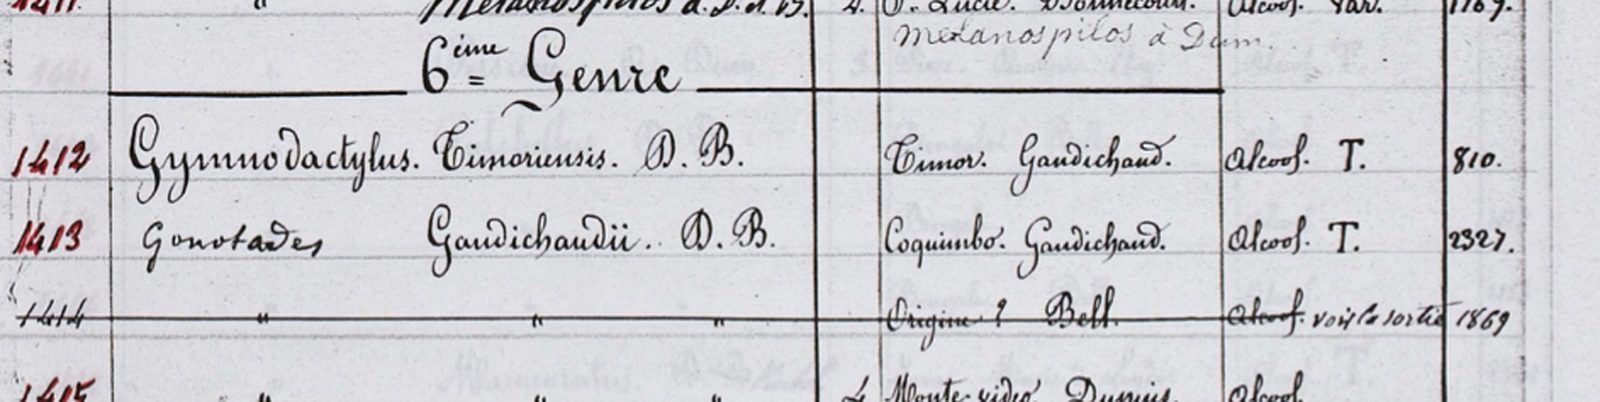 1411. " Melanospilos d. D. et B. 4. S.te Lucie. Bonnecourt. Alcool. Var. 1169.
melanospilos à Dum.
6ème Genre
1412 Gymnodactylus. Timoriensis. D. B. Timor. Gaudichaud. Alcool. T. 810.
1413 Gonotades Gaudichaudii. D. B. Coquimbo. Gaudichaud. Alcool. T. 2327.
1414 " " " Origine ? Bell. Alcool. voir la sortie 1869
1415 " " " 4 Monte video Alcool.